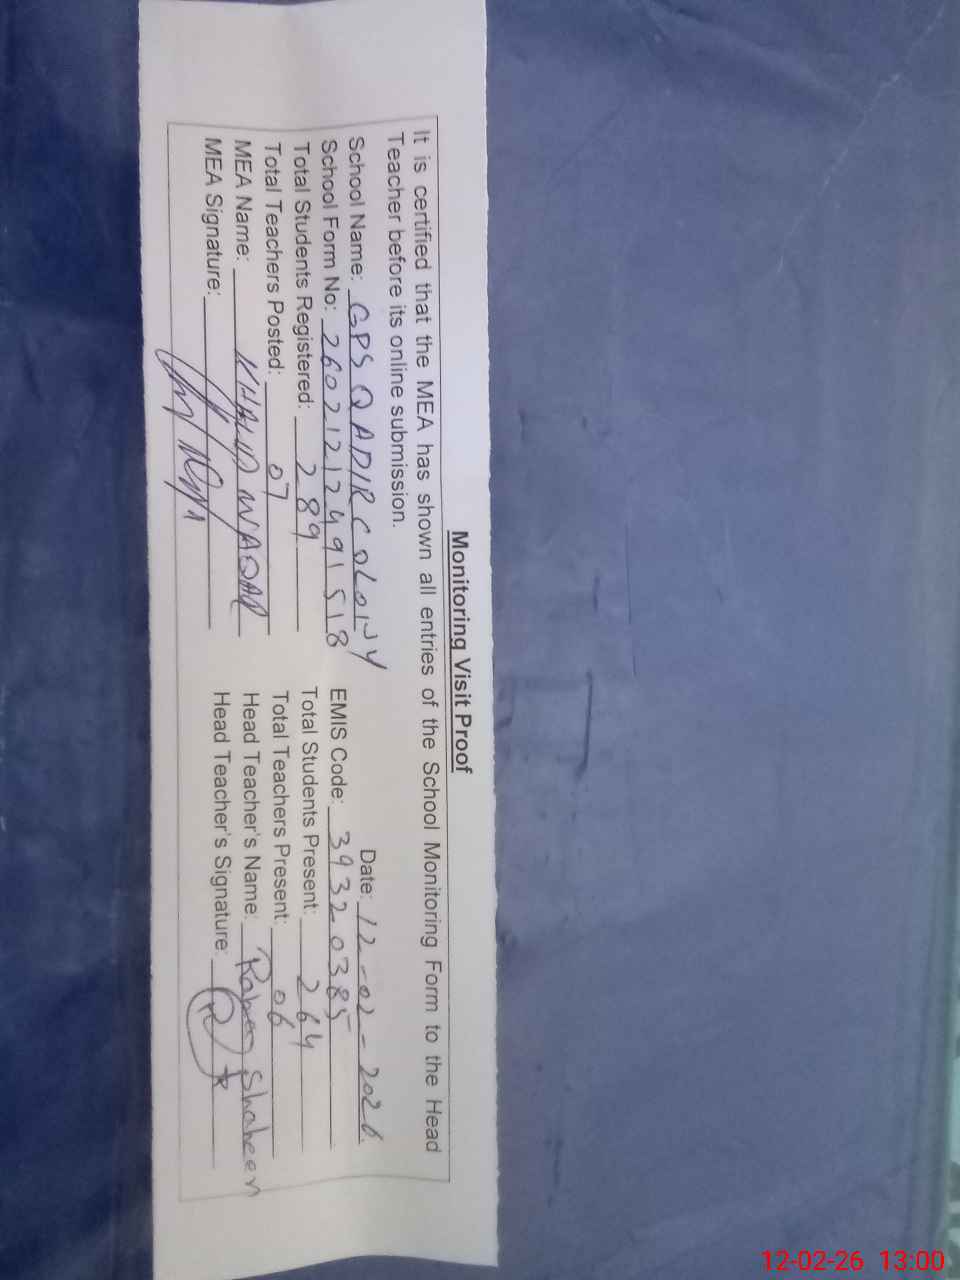 Monitoring Visit Proof
It is certified that the MEA has shown all entries of the School Monitoring Form to the Head
Teacher before its online submission.
Date: 12-02-2026
School Name: GPS QADIR COLONY
School Form No: 26021212491518 EMIS Code: 39320385
Total Students Registered: 289 Total Students Present: 264
Total Teachers Posted: 07 Total Teachers Present: 06
MEA Name: KHALID WAQAR Head Teacher's Name: Shaheen
MEA Signature: Head Teacher's Signature:
12-02-26 13:00